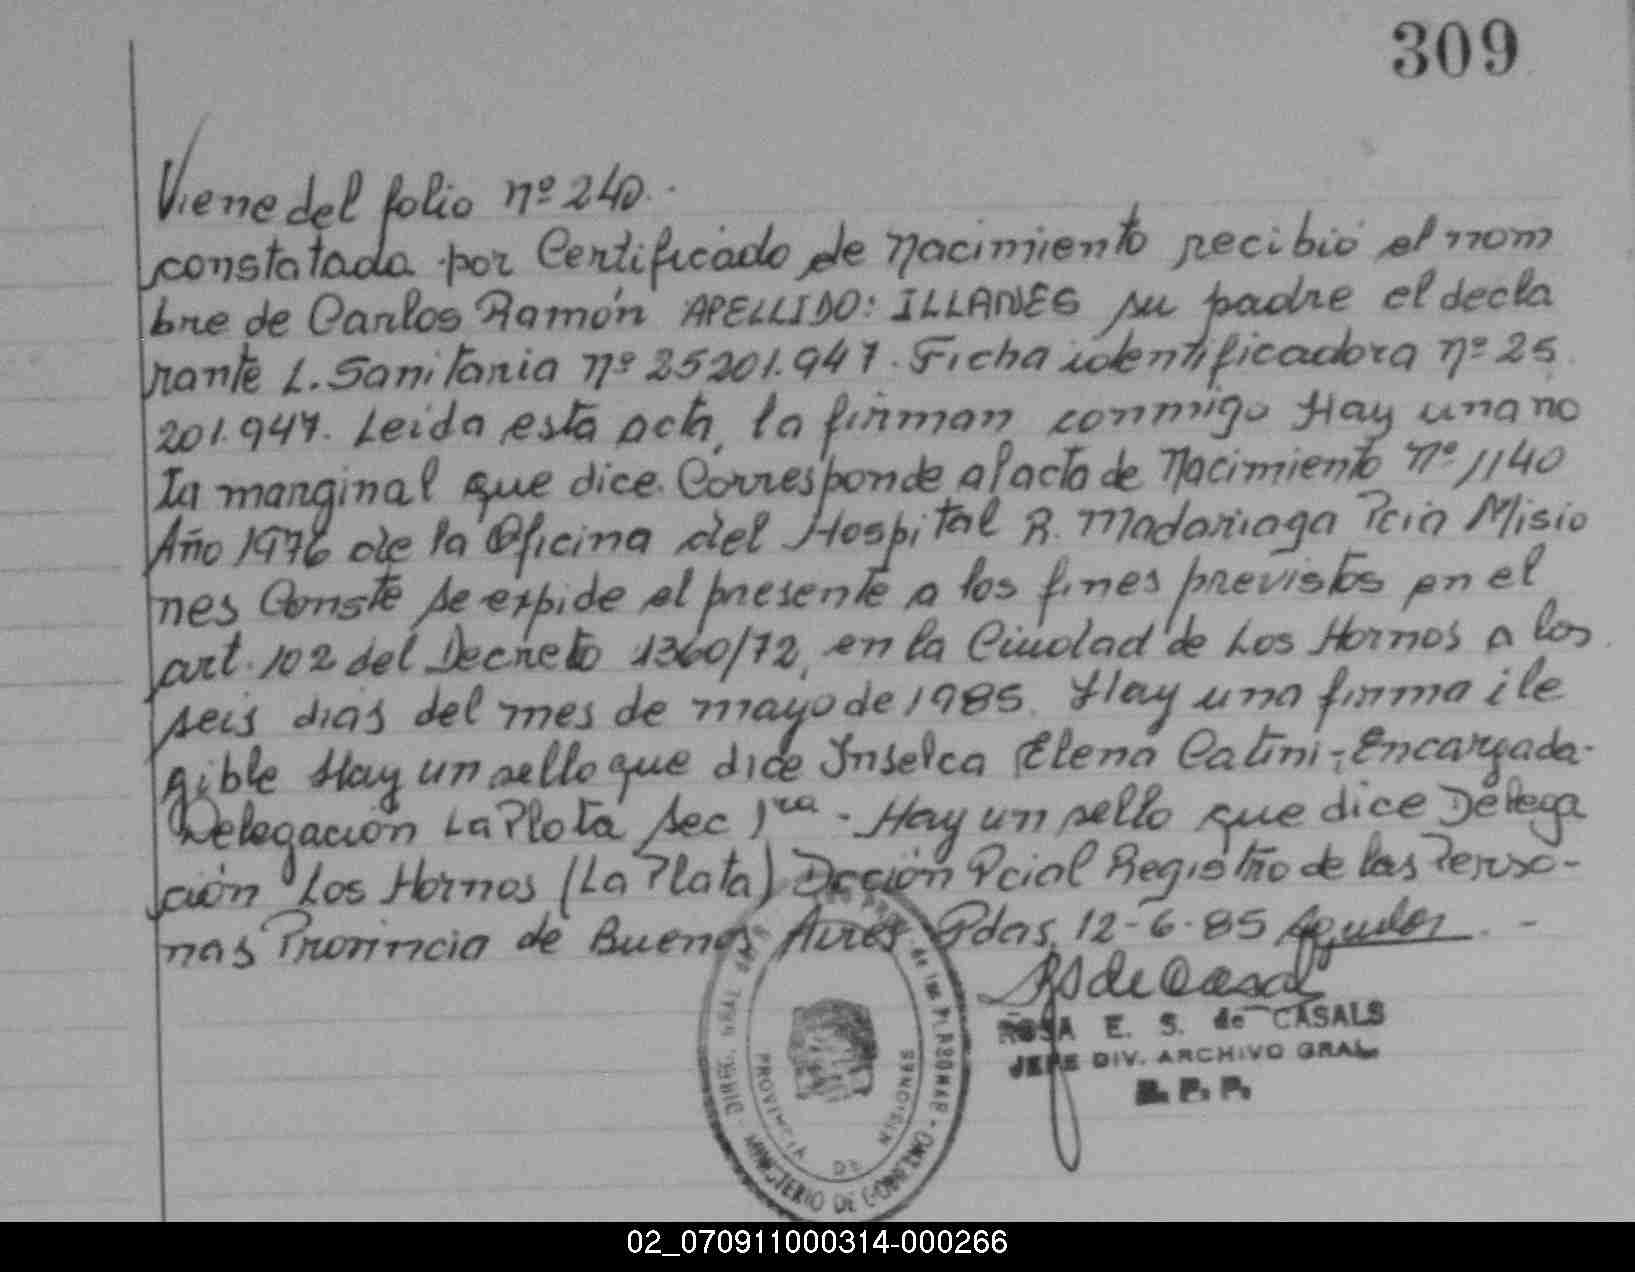 309
Viene del folio nº 240.
constatada por Certificado de Nacimiento recibió el nom
bre de Carlos Ramón APELLIDO: ILLANES su padre el decla
rante L. Sanitaria nº 25201.947. Ficha identificadora nº 25
201.947. Leida esta acta, la firman conmigo Hay una no
ta marginal que dice. Corresponde al acta de Nacimiento nº 1140
Año 1976 de la Oficina del Hospital R. Madariaga Pcia Misio
nes Conste se expide el presente a los fines previstos en el
art. 102 del Decreto 1360/72, en la Ciudad de Los Hornos a los
seis dias del mes de mayo de 1985. Hay una firma ile
gible Hay un sello que dice Elena Catini-Encargada-
Delegación La Plata Sec 1ra - Hay un sello que dice Delega
ción Los Hornos (La Plata) Pcial Registro de las Perso-
nas Provincia de Buenos Aires Pdas, 12-6-85
ROSA E. S. de CASALS
JEFE DIV. ARCHIVO GRAL.
PROVINCIA DE MISIONES
MINISTERIO DE GOBIERNO
02_070911000314-000266